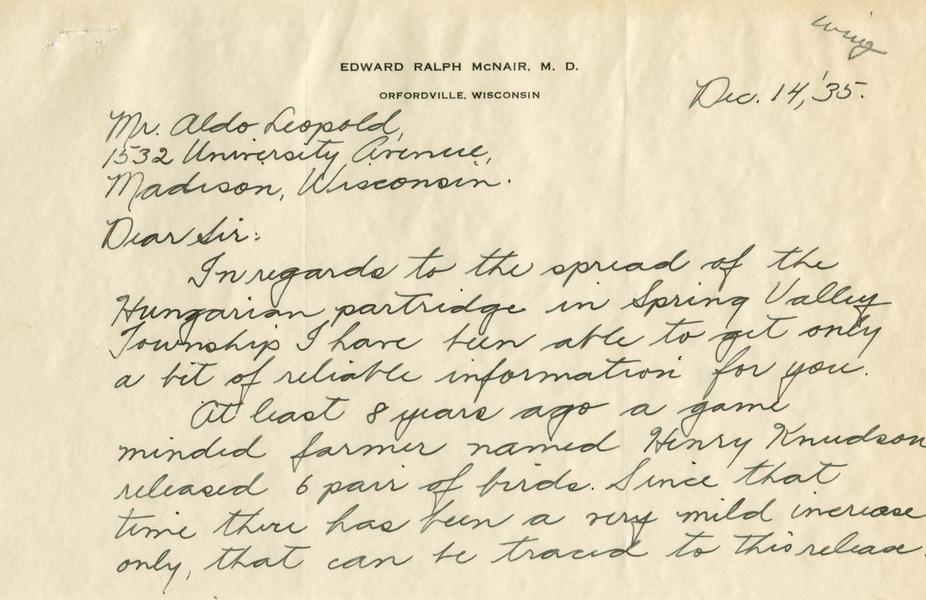 Wing
EDWARD RALPH McNAIR, M. D.
ORFORDVILLE, WISCONSIN
Dec. 14, '35.
Mr. Aldo Leopold,
1532 University Avenue,
Madison, Wisconsin.
Dear Sir:
In regards to the spread of the
Hungarian partridge in Spring Valley
Township I have been able to get only
a bit of reliable information for you.
At least 8 years ago a game
minded farmer named Henry Knudson
released 6 pair of birds. Since that
time there has been a very mild increase
only, that can be traced to this release.